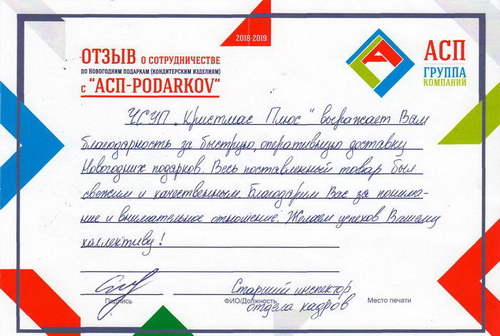 2018-2019
ОТЗЫВ О СОТРУДНИЧЕСТВЕ
ПО НОВОГОДНИМ ПОДАРКАМ (КОНДИТЕРСКИМ ИЗДЕЛИЯМ)
С "АСП-PODARKOV"
АСП
ГРУППА
КОМПАНИЙ
ЧСУП „Кристмас Плюс" выражает Вам
благодарность за быструю, оперативную доставку
Новогодних подарков. Весь поставленный товар был
свежим и качественным. Благодарим Вас за понима-
ние и внимательное отношение. Желаем успехов Вашему
коллективу!
Старший инспектор
отдела кадров
Подпись
ФИО/Должность
Место печати